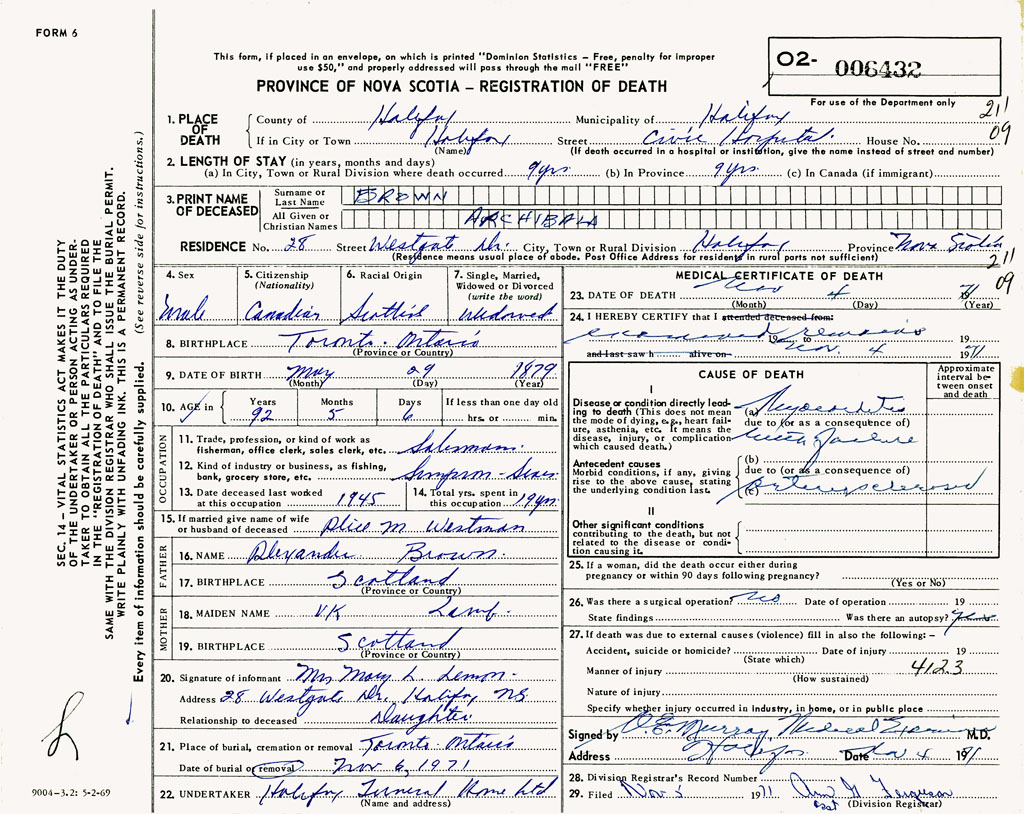 FORM 6
This form, if placed in an envelope, on which is printed "Dominion Statistics – Free, penalty for improper
use $50," and properly addressed will pass through the mail "FREE"
PROVINCE OF NOVA SCOTIA – REGISTRATION OF DEATH
O2- 006432
For use of the Department only
211
09
1. PLACE OF DEATH
County of Halifax Municipality of Halifax
If in City or Town Halifax Street Civic Hospital House No.
(Name) (If death occurred in a hospital or institution, give the name instead of street and number)
2. LENGTH OF STAY (in years, months and days)
(a) In City, Town or Rural Division where death occurred 9 yrs (b) In Province 9 yrs (c) In Canada (if immigrant)
3. PRINT NAME OF DECEASED
Surname or Last Name BROWN
All Given or Christian Names ARCHIBALD
RESIDENCE No. 28 Street Westgate Dr. City, Town or Rural Division Halifax Province Nova Scotia
(Residence means usual place of abode. Post Office Address for residents in rural parts not sufficient)
211
09
4. Sex
Male
5. Citizenship
(Nationality)
Canadian
6. Racial Origin
Scottish
7. Single, Married,
Widowed or Divorced
(write the word)
Widowed
8. BIRTHPLACE Toronto Ontario
(Province or Country)
9. DATE OF BIRTH May 29 1879
(Month) (Day) (Year)
10. AGE in
Years Months Days If less than one day old
92 5 6 hrs. or min.
OCCUPATION
11. Trade, profession, or kind of work as
fisherman, office clerk, sales clerk, etc. Salesman
12. Kind of industry or business, as fishing,
bank, grocery store, etc. Simpson-Sears
13. Date deceased last worked
at this occupation 1945
14. Total yrs. spent in
this occupation 19 yrs
15. If married give name of wife
or husband of deceased Alice M. Westman
FATHER
16. NAME Alexander Brown
17. BIRTHPLACE Scotland
(Province or Country)
MOTHER
18. MAIDEN NAME U.K Lamb
19. BIRTHPLACE Scotland
(Province or Country)
20. Signature of informant Mrs Mary L. Lemon
Address 28 Westgate Dr., Halifax NS
Relationship to deceased Daughter
21. Place of burial, cremation or removal Toronto Ontario
Date of burial or removal Nov 6, 1971
22. UNDERTAKER Halifax Funeral Home Ltd
(Name and address)
MEDICAL CERTIFICATE OF DEATH
23. DATE OF DEATH Nov 4 71
(Month) (Day) (Year)
24. I HEREBY CERTIFY that I attended deceased from:
examined remains 19
19 to Nov. 4
and last saw h alive on 1971
CAUSE OF DEATH
Approximate
interval be-
tween onset
and death
I
Disease or condition directly lead-
ing to death (This does not mean
the mode of dying, e.g., heart fail-
ure, asthenia, etc. It means the
disease, injury, or complication
which caused death.)
(a) Myocarditis
due to (or as a consequence of)
with failure
Antecedent causes
Morbid conditions, if any, giving
rise to the above cause, stating
the underlying condition last.
(b)
due to (or as a consequence of)
(c) Arteriosclerosis
II
Other significant conditions
contributing to the death, but not
related to the disease or condi-
tion causing it.
25. If a woman, did the death occur either during
pregnancy or within 90 days following pregnancy?
(Yes or No)
26. Was there a surgical operation? No Date of operation 19
State findings Was there an autopsy?
27. If death was due to external causes (violence) fill in also the following: –
Accident, suicide or homicide? Date of injury 19
(State which)
Manner of injury 4123
(How sustained)
Nature of injury
Specify whether injury occurred in industry, in home, or in public place
Signed by D.E. Murray Medical Examiner M.D.
Address Halifax Date Nov 4 1971
28. Division Registrar's Record Number
29. Filed Nov 5 1971 Ann G Ferguson
asst (Division Registrar)
SEC. 14 – VITAL STATISTICS ACT MAKES IT THE DUTY
OF THE UNDERTAKER OR PERSON ACTING AS UNDER-
TAKER TO OBTAIN ALL THE PARTICULARS REQUIRED
IN THE "REGISTRATION OF DEATH" AND TO FILE THE
SAME WITH THE DIVISION REGISTRAR WHO SHALL ISSUE THE BURIAL PERMIT.
WRITE PLAINLY WITH UNFADING INK. THIS IS A PERMANENT RECORD.
Every item of information should be carefully supplied. (See reverse side for instructions.)
9004-3.2: 5-2-69